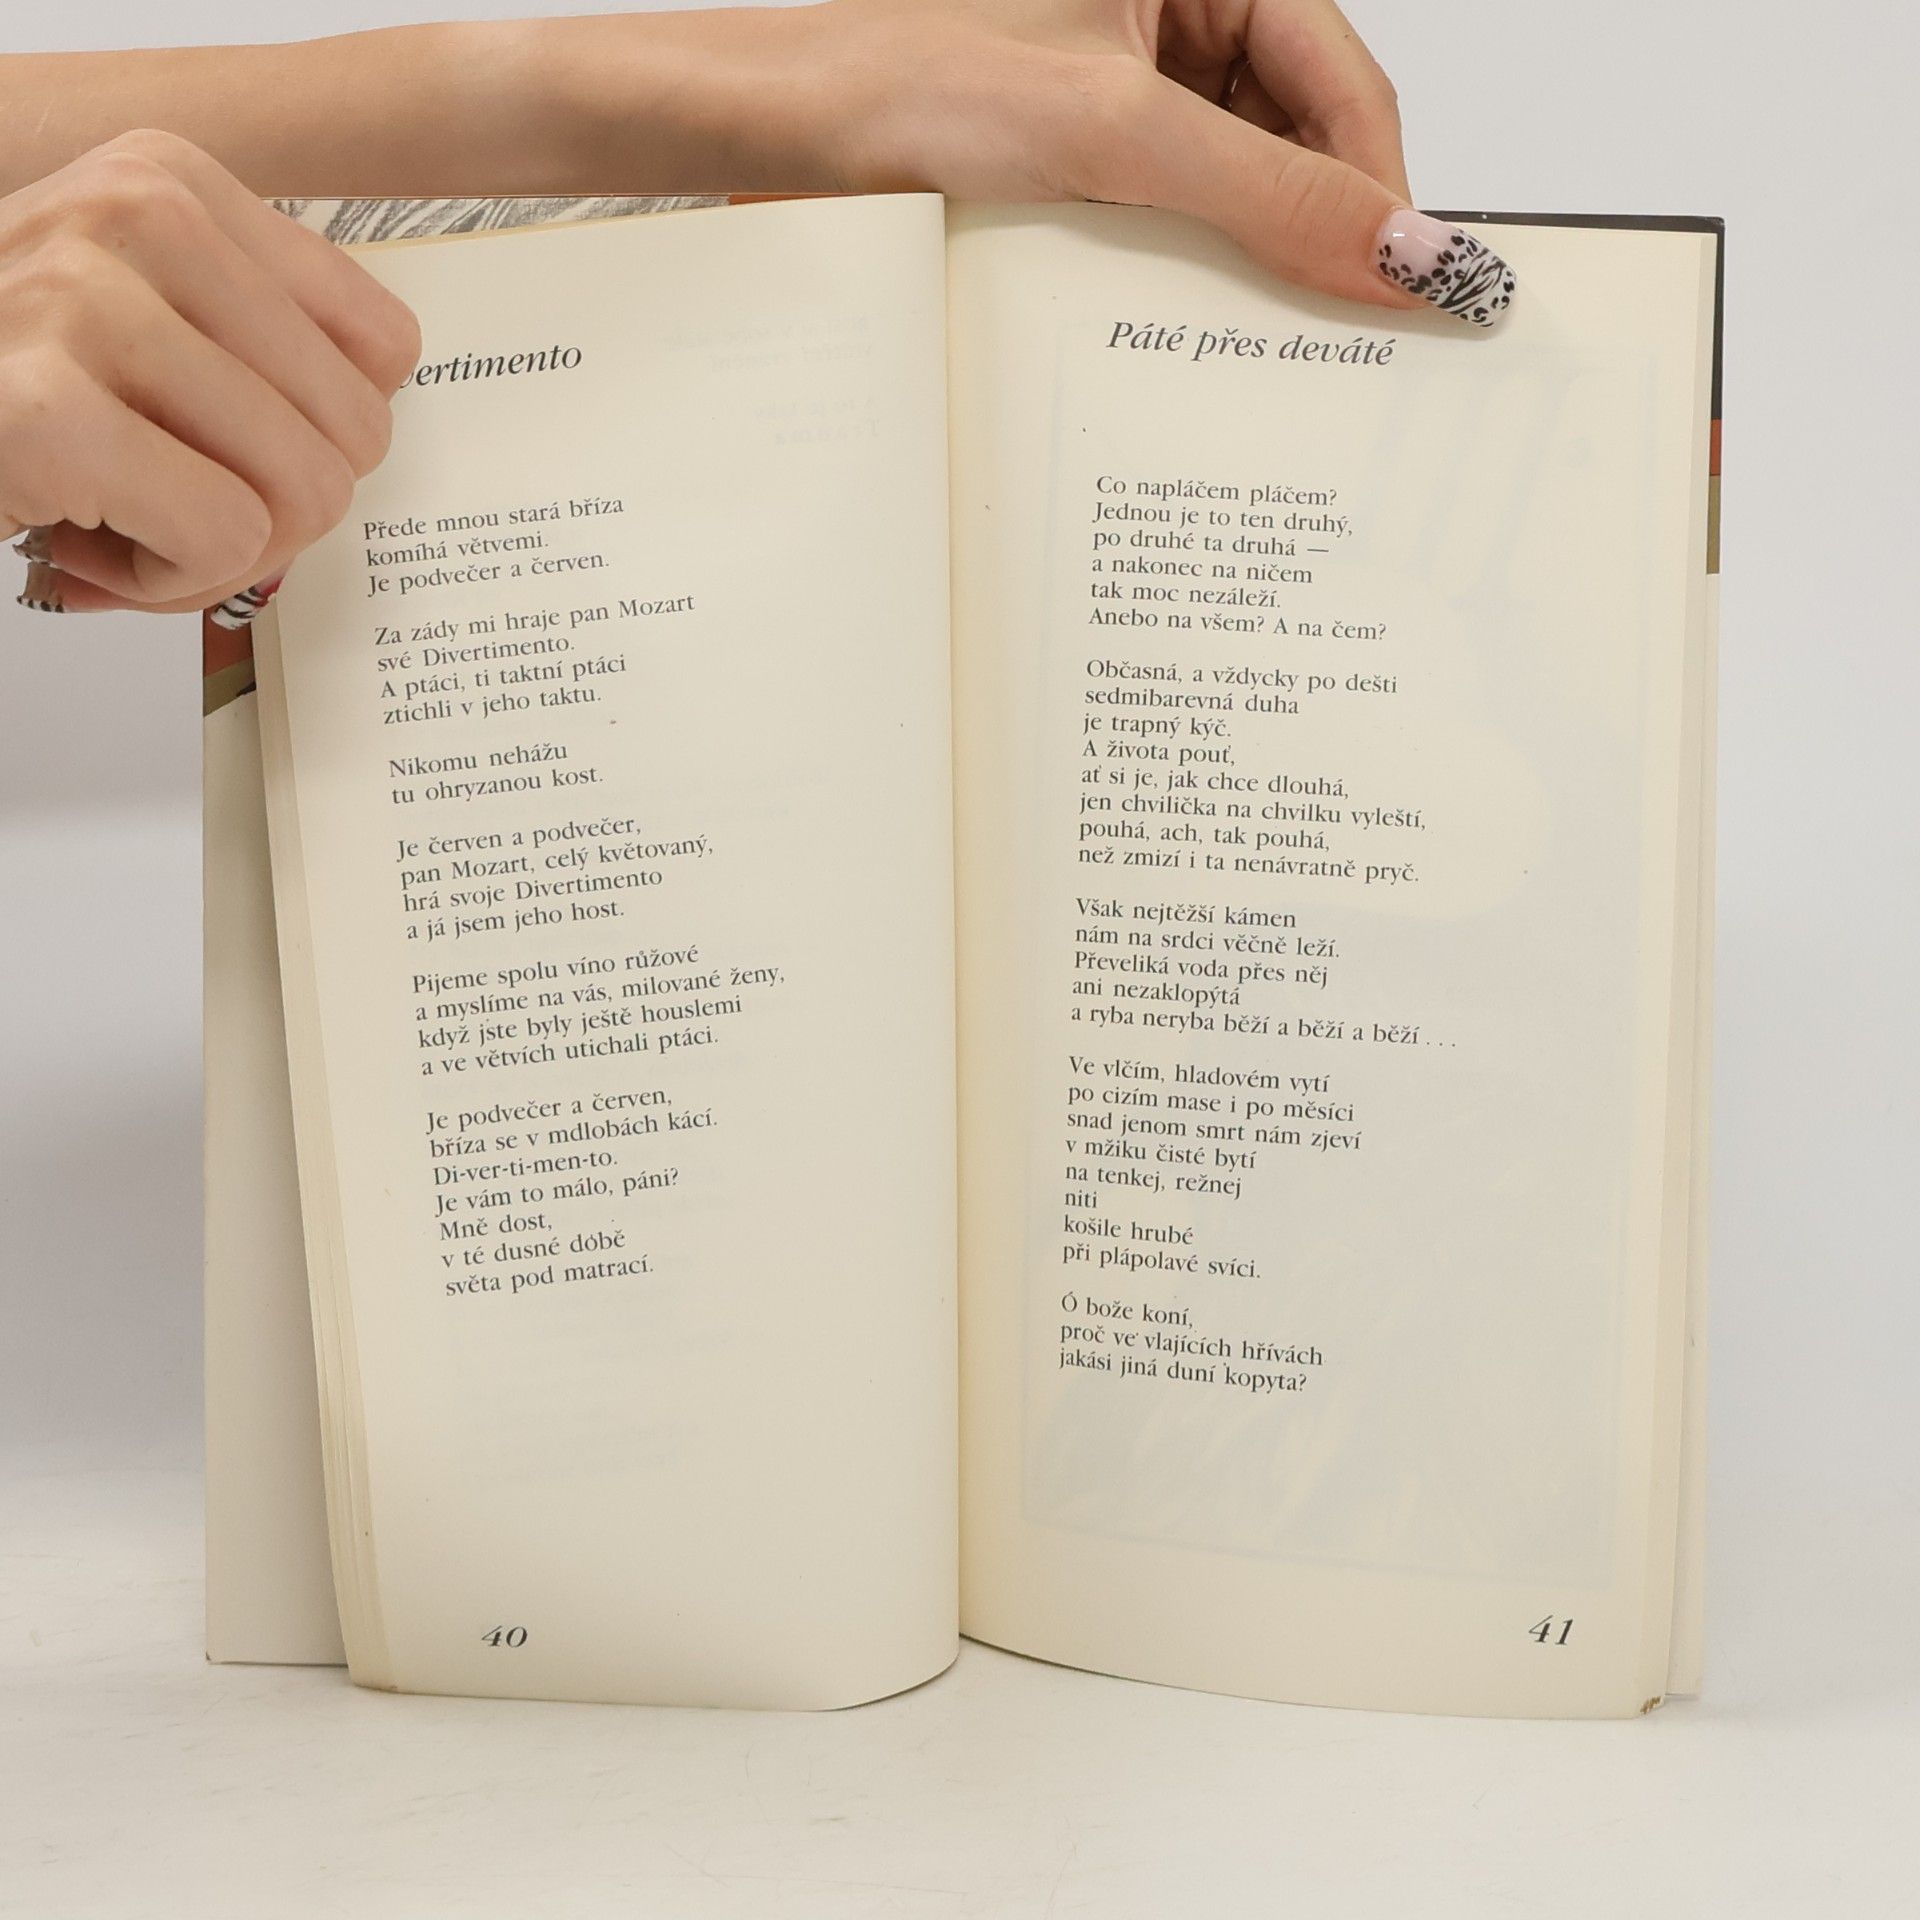 vertimento
Přede mnou stará bříza
komíhá větvemi.
Je podvečer a červen.
Za zády mi hraje pan Mozart
své Divertimento.
A ptáci, ti taktní ptáci
ztichli v jeho taktu.
Nikomu nehážu
tu ohryzanou kost.
Je červen a podvečer,
pan Mozart, celý květovaný,
hrá svoje Divertimento
a já jsem jeho host.
Pijeme spolu víno růžové
a myslíme na vás, milované ženy,
když jste byly ještě houslemi
a ve větvích utichali ptáci.
Je podvečer a červen,
bříza se v mdlobách kácí.
Di-ver-ti-men-to.
Je vám to málo, páni?
Mně dost,
v té dusné době
světa pod matrací.
40
Páté přes deváté
Co napláčem pláčem?
Jednou je to ten druhý,
po druhé ta druhá —
a nakonec na ničem
tak moc nezáleží.
Anebo na všem? A na čem?
Občasná, a vždycky po dešti
sedmibarevná duha
je trapný kýč.
A života pouť,
ať si je, jak chce dlouhá,
jen chvilička na chvilku vyleští,
pouhá, ach, tak pouhá,
než zmizí i ta nenávratně pryč.
Však nejtěžší kámen
nám na srdci věčně leží.
Převeliká voda přes něj
ani nezaklopýtá
a ryba neryba běží a běží a běží . . .
Ve vlčím, hladovém vytí
po cizím mase i po měsíci
snad jenom smrt nám zjeví
v mžiku čisté bytí
na tenkej, režnej
niti
košile hrubé
při plápolavé svíci.
Ó bože koní,
proč ve vlajících hřívách
jakási jiná duní kopyta?
41